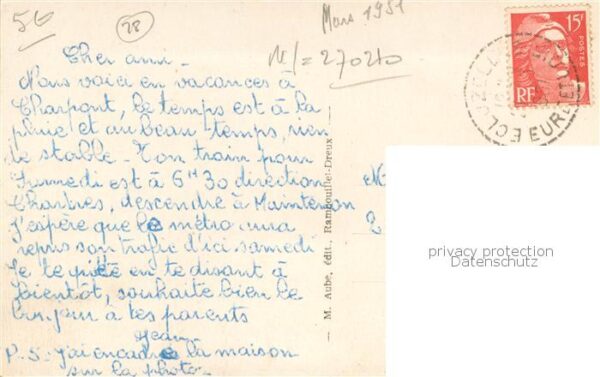 5€
28
Mars 1951
N/= 27020
15F
POSTES
RF
ECLUZELLES
EURE ET
Cher ami -
Nous voici en vacances à
Charpont, le temps est à la
pluie et au beau temps, rien
de stable - Ton train pour
Samedi est à 6H30 direction
Chartres, descendre à Maintenon
J'espère que le métro aura
repris son trafic d'ici samedi
Je te quitte en te disant à
bientôt, souhaite bien le
bonjour à tes parents
Jean
P.S. J'ai encadré la maison
sur la photo -
— M. Aube, édit., Rambouillet-Dreux —
M
2
privacy protection
Datenschutz